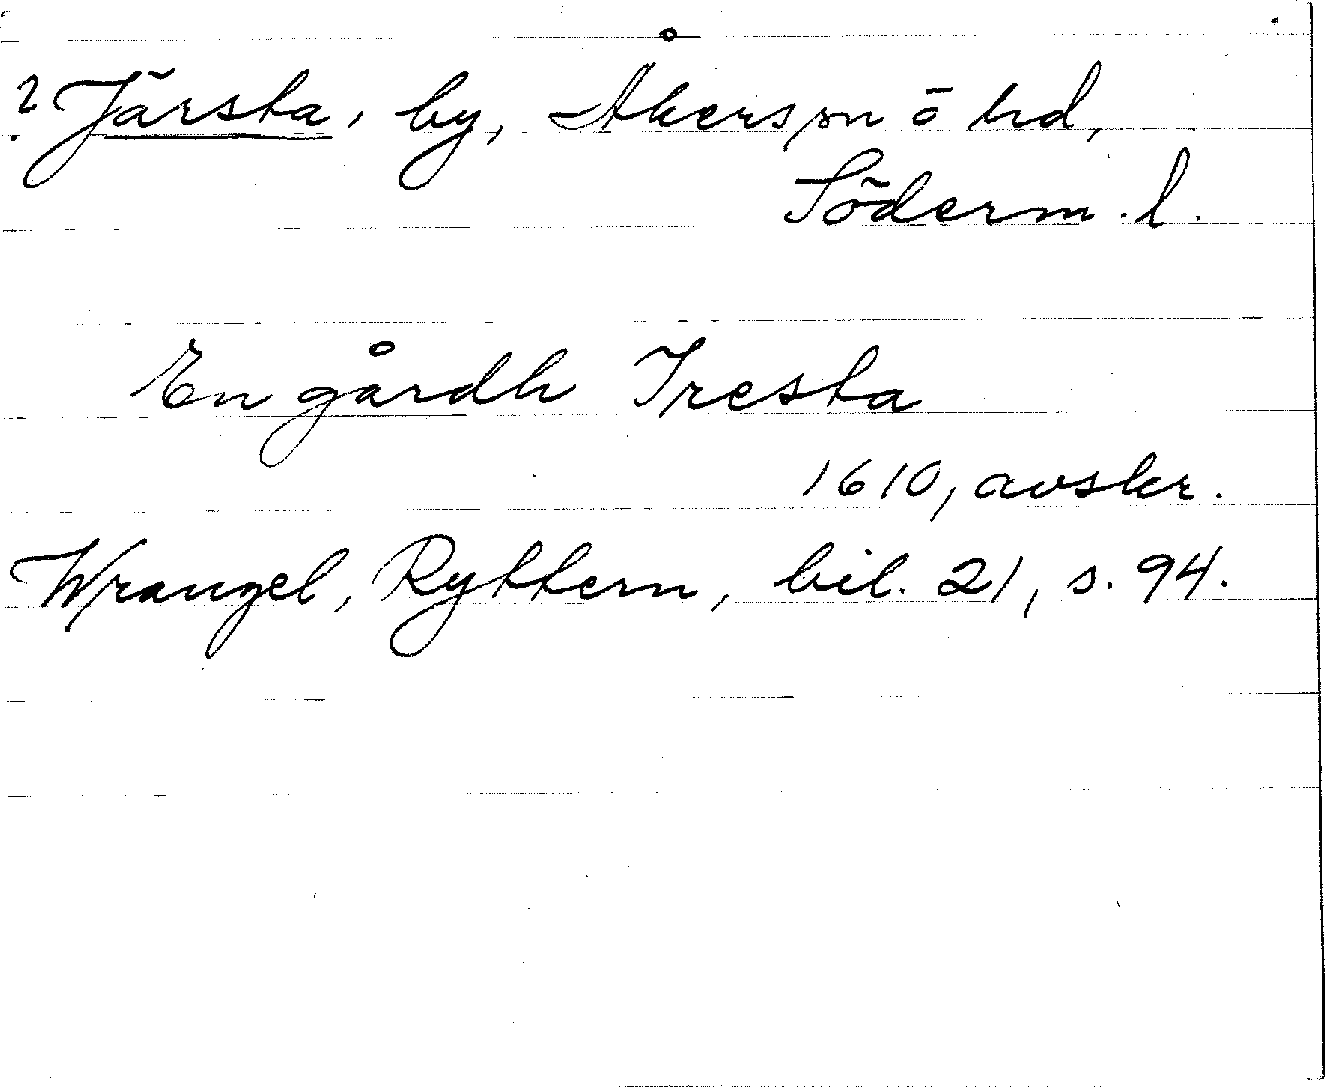 ? Järsta, by, Åkers sn ö hd,
Söderm. l.
En gårdh Iresta
1610, avskr.
Wrangel, Ryttern, bil. 21, s. 94.